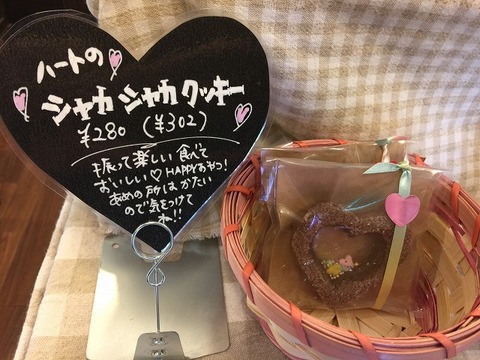 ハートの
シャカシャカクッキー
¥280 (¥302)
振って楽しい食べて
おいしい♡HAPPYおやつ!
あめの所はかたい
ので気をつけて
ね!!